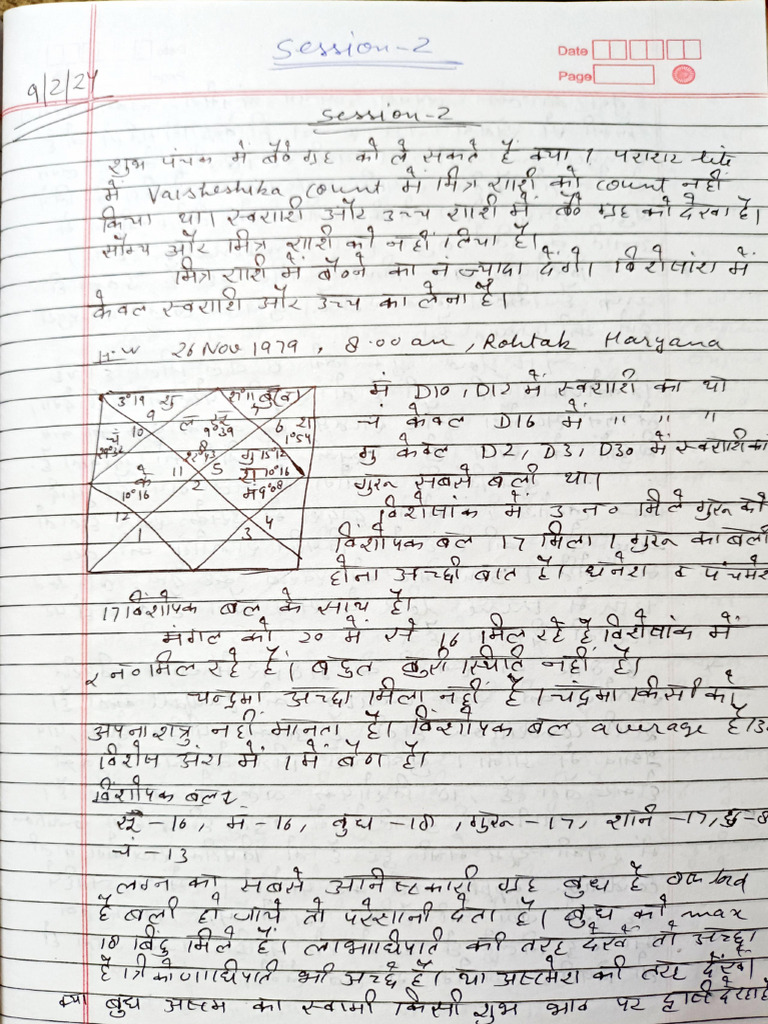 Session-2
Date
Page
9/2/24
Session-2
शुभ पंचक में बैठे ग्रह को ले सकते हैं क्या। पराशर
में Vaisheshika count में मित्र राशी को count नहीं
किया था। स्वराशी और उच्च राशी में बैठे ग्रह को देखा है।
सौम्य और मित्र राशी को नहीं लिया है।
मित्र राशी में बैठने का नं ज्यादा देंगे। विशेषांश में
केवल स्वराशी और उच्च का लेना है।
H.W 26 Nov 1979, 8.00 am, Rohtak Haryana
3°19 शु
9
ल
8
7
बु(व)
चं
10
9°39
6 रा
1°54
श
11
5
गु 15°12
के
10°16
2
10°16
मं 9°08
12
1
3
4
मं D10, D12 में स्वराशी का था
चं केवल D16 में " " "
गु केवल D2, D3, D30 में स्वराशी का
गुरू सबसे बली था।
विशेषांक में 3 नं० मिले गुरू को
विंशोपक बल 17 मिला। गुरू का बली
होना अच्छी बात है। धनेश व पंचमेश
17 विंशोपक बल के साथ है।
मंगल को 20 में से 16 मिल रहे हैं विशेषांक में
2 नं० मिल रहे हैं। बहुत बुरी स्थिति नहीं है।
चन्द्रमा अच्छा मिला नहीं है। चंद्रमा किसी को
अपना शत्रु नहीं मानता है। विंशोपक बल average है 13
विशेष अंश में 1 में बैठा है।
विंशोपक बल
सू-16, मं-16, बुध-18, गुरू-17, शनि-17, शु-8
चं-13
लग्न का सबसे अनिष्टकारी ग्रह बुध है
है बली हो जाये तो परेशानी देता है। बुध को max
18 बिंदु मिले हैं। लाभाधिपति की तरह देखें तो अच्छा
है। त्रिकोणाधिपति भी अच्छे हैं। या अष्टमेश की तरह देखें
क्या बुध अष्टम का स्वामी किसी शुभ भाव पर दृष्टि देता है